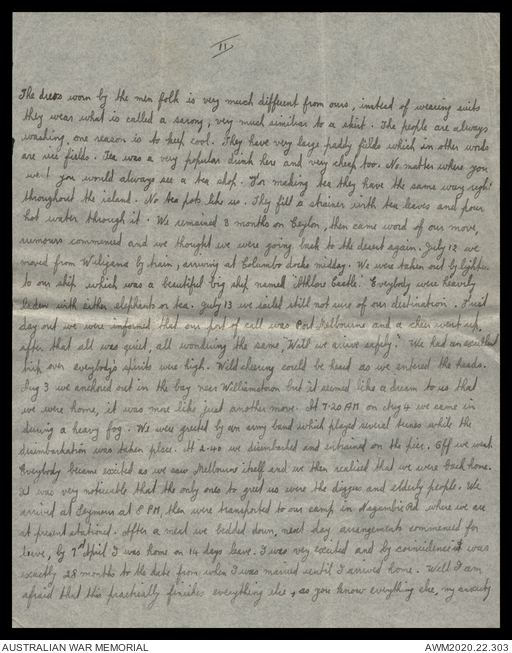 11
The dress worn by the men folk is very much different from ours, instead of wearing suits
they wear what is called a sarong, very much similiar to a skirt. The people are always
washing, one reason is to keep cool. They have very large paddy fields which in other words
are rice fields. Tea was a very popular drink here and very cheap too. No matter where you
went you would always see a tea shop. For making tea they have the same way right
throughout the island. No tea pots like us. They fill a strainer with tea leaves and pour
hot water through it. We remained 3 months on Ceylon, then came word of our move,
rumours commenced and we thought we were going back to the desert again. July 12 we
moved from Weligama by train, arriving at Columbo docks midday. We were taken out by lighter
to our ship which was a beautiful big ship named "Athlone Castle". Everybody were heavily
laden with either elephants or tea. July 13 we sailed still not sure of our destination. First
day out we were informed that our port of call was Port Melbourne and a cheer went up,
after that all was quiet, all wondering the same, "Will we arrive safely". We had an excellent
trip over everybody's spirits were high. Wild cheering could be heard as we entered the heads.
Aug 3 we anchored out in the bay near Williamstown but it seemed like a dream to us that
we were home, it was more like just another move. At 7.20 AM on Aug 4 we came in
during a heavy fog. We were greeted by an army band which played several tunes while the
disembarkation was taken place. At 2.40 we disembarked and entrained on the pier. Off we went.
Everybody became exited as we saw Melbourne itself and we then realised that we were back home.
It was very noticeable that the only ones to greet us were the diggers and elderly people. We
arrived at Seymour at 8 PM, then were transported to our camp in Nagambie Rd where we are
at present stationed. After a meal we bedded down, next day arrangements commenced for
leave, by 7th April I was home on 14 days leave. I was very excited and by coincidence it was
exactly 28 months to the date from when I was married until I arrived home. Well I am
afraid that this practically finishes everything else, as you know everything else, my anxiety
AUSTRALIAN WAR MEMORIAL
AWM2020.22.303